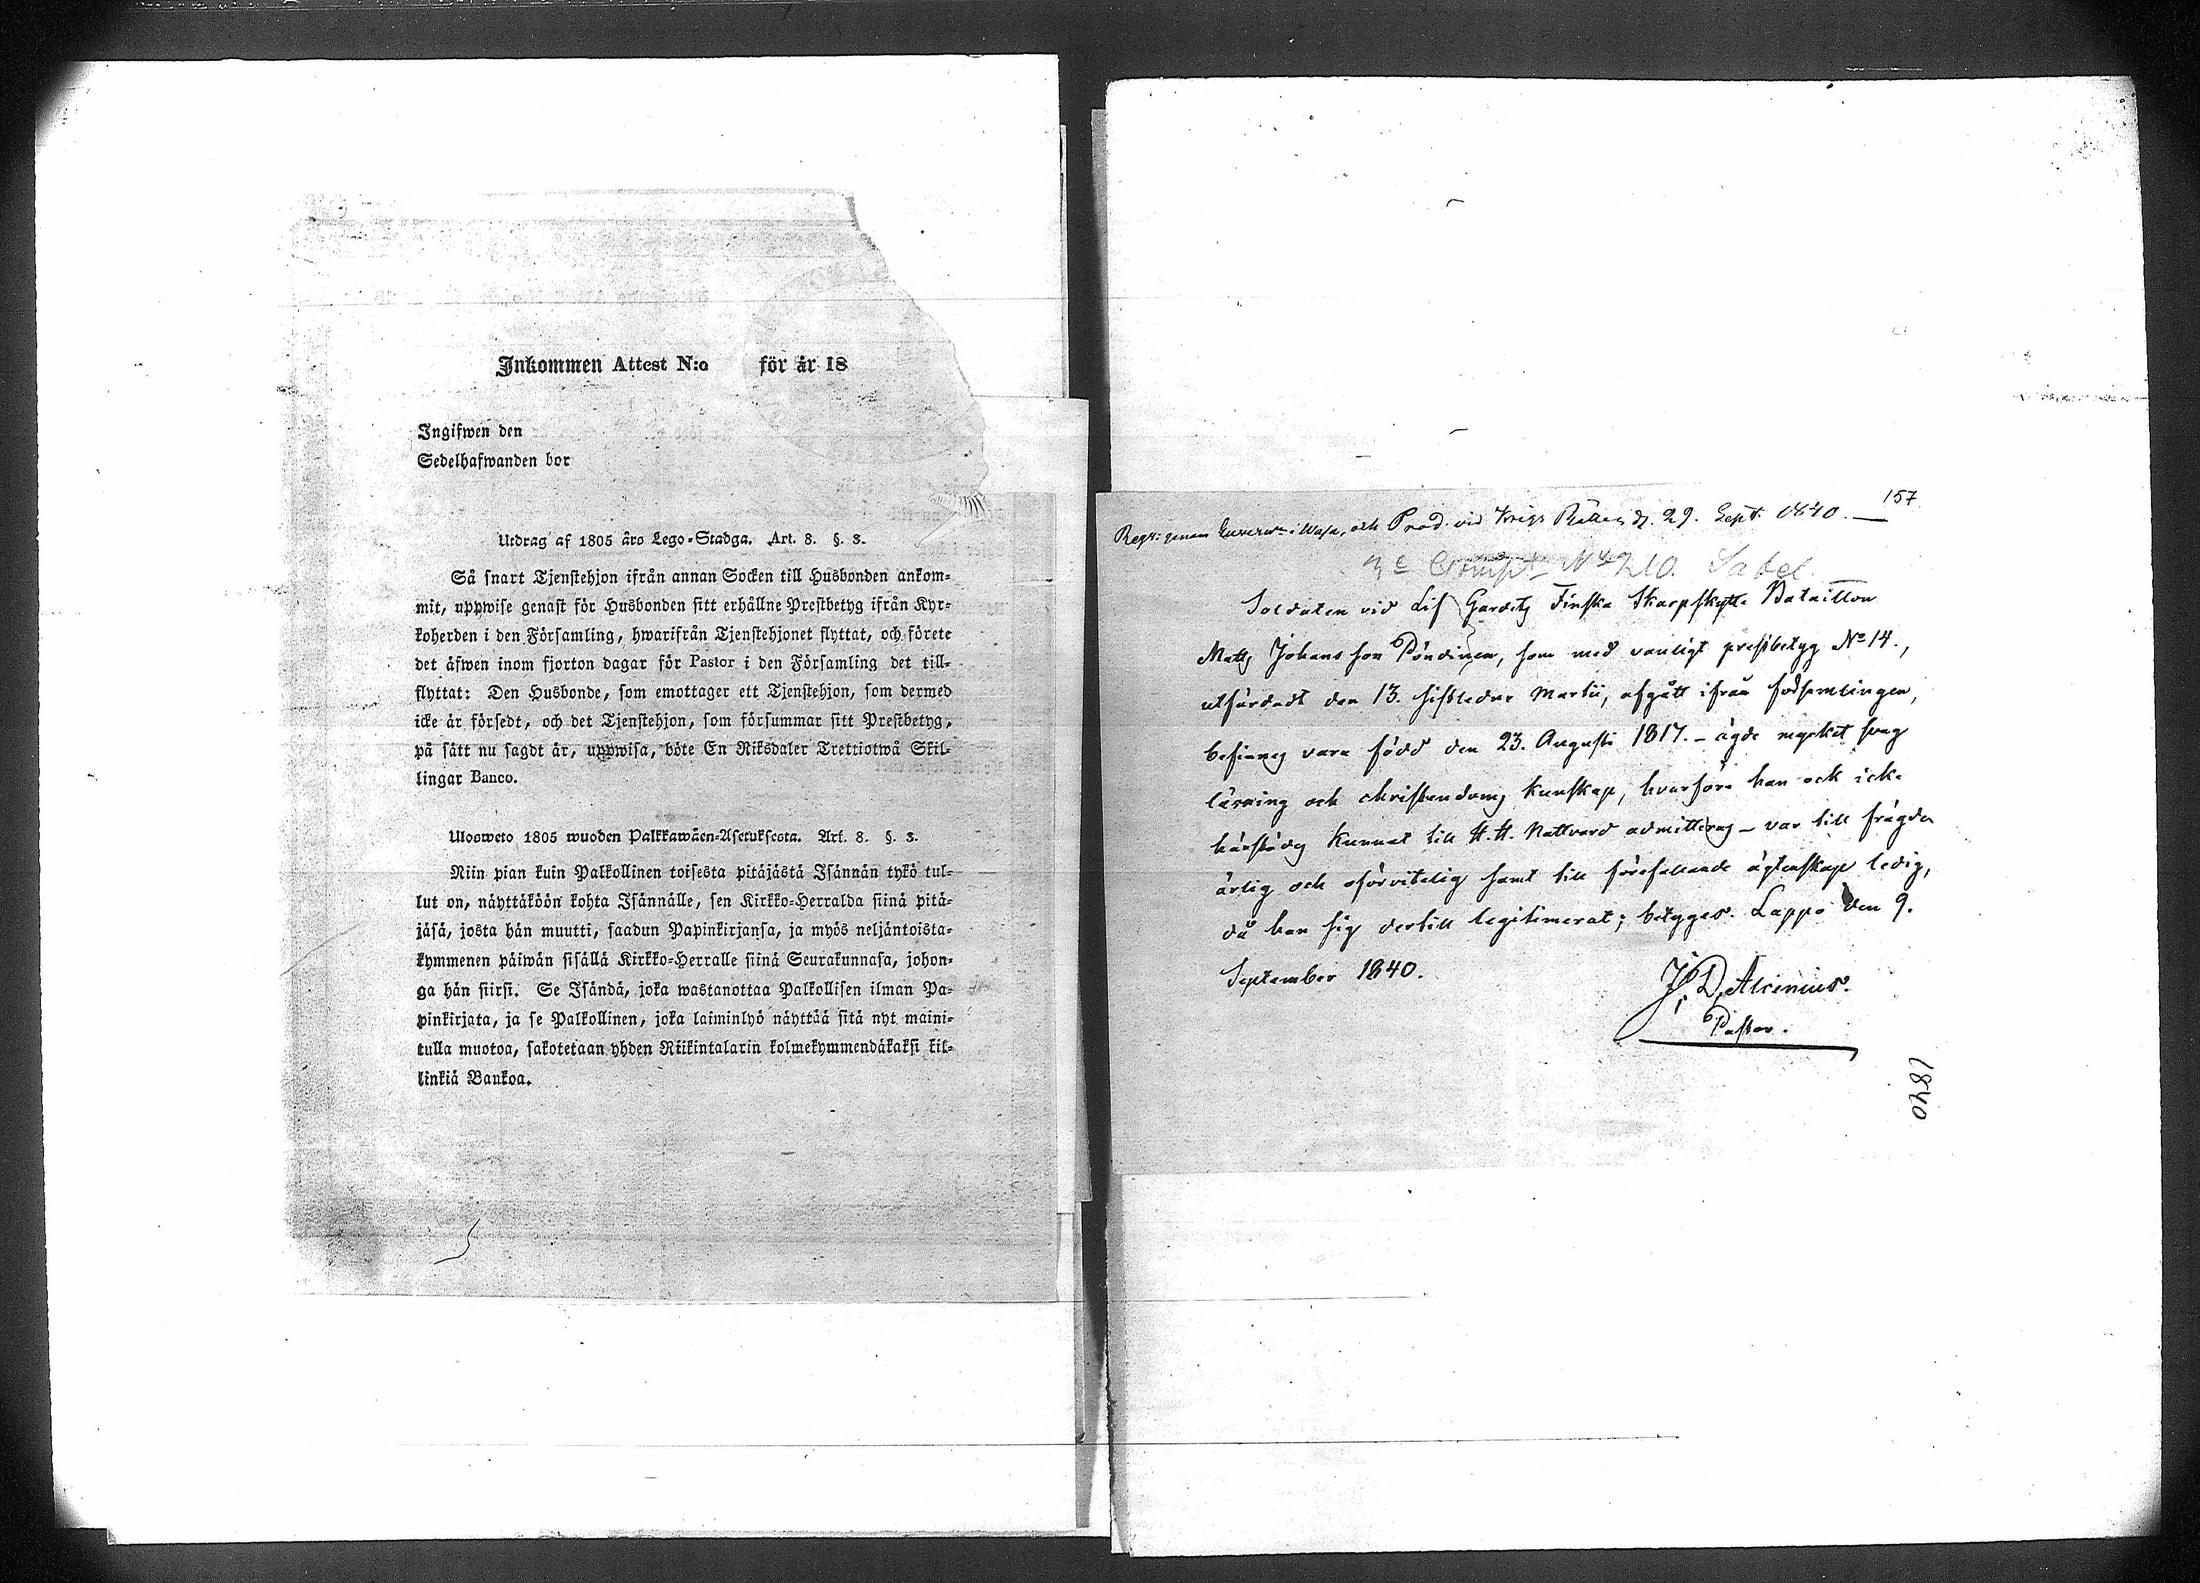 Inkommen Attest N:o för år 18
Ingifwen den
Sedelhafwanden bor
Utdrag af 1805 års Lego-Stadga. Art. 8. §. 3.
Så snart Tjenstehjon ifrån annan Socken till Husbonden ankom-
mit, uppwise genast för Husbonden sitt erhållne Prestbetyg ifrån Kyr-
koherden i den Församling, hwarifrån Tjenstehjonet flyttat, och förete
det äfwen inom fjorton dagar för Pastor i den Församling det till-
flyttat: Den Husbonde, som emottager ett Tjenstehjon, som dermed
icke är försedt, och det Tjenstehjon, som försummar sitt Prestbetyg,
på sätt nu sagdt är, uppwisa, böte En Riksdaler Trettiotwå Skil-
lingar Banco.
Ulosweto 1805 wuoden Palkkawäen-Asetuksesta. Art. 8. §. 3.
Niin pian kuin Palkollinen toisesta pitäjästä Isännän tykö tul-
lut on, näyttäköön kohta Isännälle, sen Kirkko-Herralda siinä pitä-
jäsä, josta hän muutti, saadun Papinkirjansa, ja myös neljäntoista-
kymmenen päiwän sisällä Kirkko-Herralle siinä Seurakunnasa, johon-
ga hän siirsi. Se Isändä, joka wastanottaa Palkollisen ilman Pa-
pinkirjata, ja se Palkollinen, joka laiminlyö näyttää sitä nyt maini-
tulla muotoa, sakotetaan yhden Riikintalarin kolmekymmendäkaksi kil-
linkiä Bankoa.
157
Regr: genom i Wasa, och Prod. vid Krigs Rätten d. 29. Sept. 1840.
3e Comp. No 210. Sabel.
Soldaten vid Lif Gardets Finska Skarpskytte Bataillon
Matts Johansson Pöndinen, som med vanligt prestbetyg No 14.,
utfärdadt den 13. sistledne Martii, afgått ifrån födsemlingen,
befinnes vara född den 23. Augusti 1817. - ägde mycket svag
läsning och christendoms kunskap, hvarföre han ock icke
härstädes kunnat till H. H. Nattvard admitteras - var till frägden
ärlig och oförvitelig samt till förefallande ägtenskap ledig,
då han sig dertill legitimerat; betygas. Lappo den 9.
September 1840.
J. D. Alcenius.
Pastor.
1840